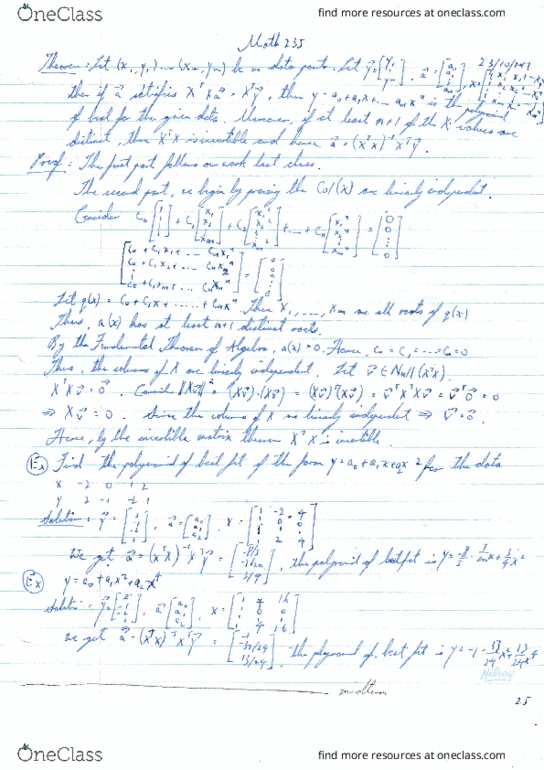 OneClass
find more resources at oneclass.com
Math 235
23/10/2017
Theorem: Let (x₁, y₁) ... (xₘ, yₘ) be m data points. Let ȳ = [y₁ ⋮ yₘ], ā = [a₀ a₁ ⋮ aₙ], X =
then if ā satisfies XᵀXā = Xᵀȳ, then y = a₀ + a₁x + ... aₙxⁿ is the polynomial
of best fit for the given data. Moreover, if at least n+1 of the x values are
distinct, then XᵀX is invertible and hence ā = (XᵀX)⁻¹Xᵀȳ.
Proof: The first part follows our work last class.
The second part, we begin by proving the Col(X) are linearly independent.
Consider C₀ [1 1 ⋮ 1] + C₁ [x₁ x₂ ⋮ xₘ] + C₂ [x₁² x₂² ⋮ xₘ²] + ... + Cₙ [x₁ⁿ x₂ⁿ ⋮ xₘⁿ] = [0 0 ⋮ 0]
[C₀ + C₁x₁ + ... Cₙx₁ⁿ
C₀ + C₁x₂ + ... Cₙx₂ⁿ
⋮
C₀ + C₁xₘ + ... Cₙxₘⁿ] = [0 0 ⋮ 0]
Let q(x) = C₀ + C₁x + ...... + Cₙxⁿ Then x₁, ...., xₘ are all roots of q(x)
Thus, q(x) has at least n+1 distinct roots.
By the Fundamental Theorem of Algebra, q(x) = 0. Hence, C₀ = C₁ = ... = Cₙ = 0
Thus, the columns of X are linearly independent. Let v̄ ∈ Null(XᵀX)
XᵀXv̄ = 0̄. Consider ||Xv̄||² = (Xv̄)·(Xv̄) = (Xv̄)ᵀ(Xv̄) = v̄ᵀXᵀXv̄ = v̄ᵀ0̄ = 0
⇒ Xv̄ = 0. Since the columns of X are linearly independent ⇒ v̄ = 0̄.
Hence, by the invertible matrix theorem XᵀX is invertible.
Ex Find the polynomial of best fit of the form y = a₀ + a₁x + a₂x² for the data
x -2 0 1 2
Solution: ȳ = ā = [a₀ a₁ a₂], X =
We get ā = (XᵀX)⁻¹Xᵀȳ = , the polynomial of best fit is y =
Ex y = a₀ + a₁x² + a₂x⁴
Solution: ȳ = ā = [a₀ a₁ a₂] X =
We get ā = (XᵀX)⁻¹Xᵀȳ = the polynomial of best fit is y = -1 -
Hilroy
midterm
25
OneClass
find more resources at oneclass.com